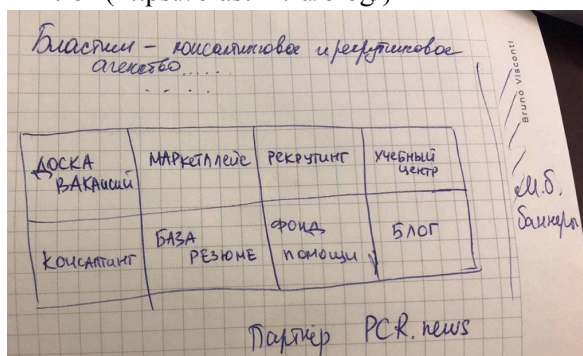 Бластим – консалтинговое и рекрутинговое
агенство.....
.....
ДОСКА ВАКАНСИЙ
МАРКЕТПЛЕЙС
РЕКРУТИНГ
УЧЕБНЫЙ ЦЕНТР
КОНСАЛТИНГ
БАЗА РЕЗЮМЕ
ФОНД ПОМОЩИ
БЛОГ
М.б. баннеры
Bruno Visconti
Партнёр PCR.news